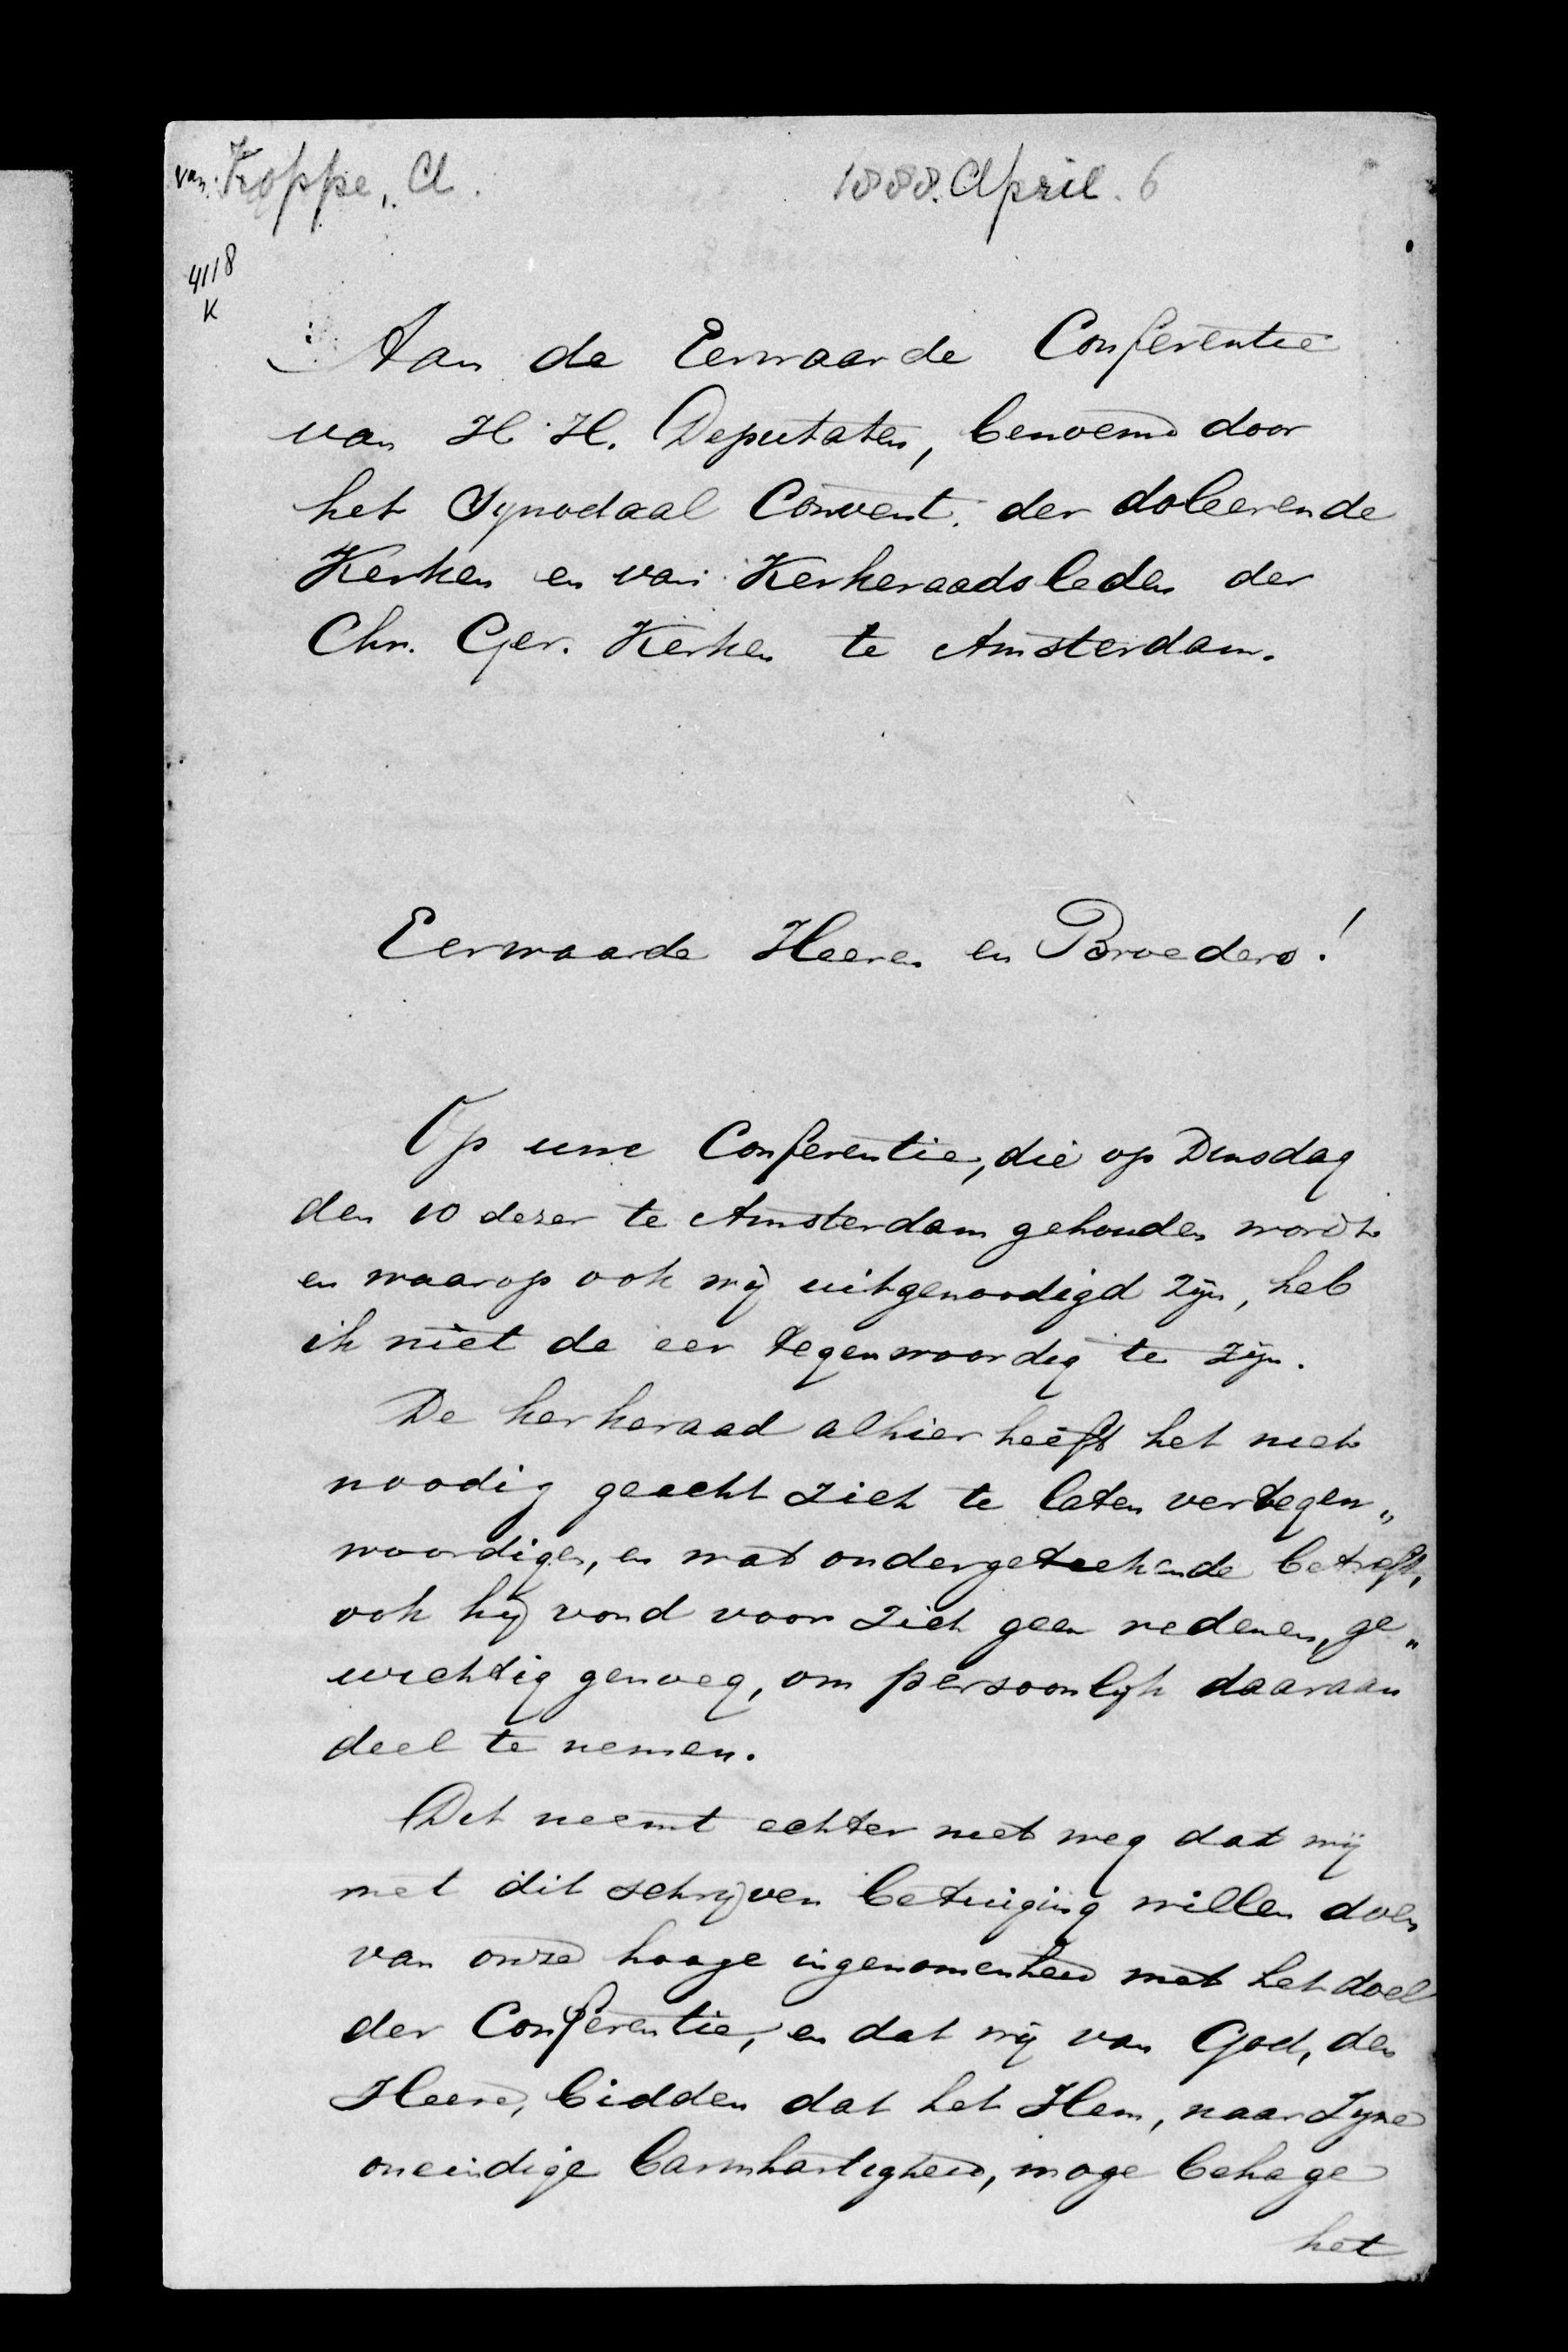 van. Koppe, A.
1888. April. 6
4118
K
Aan de Eerwaarde Conferentie
van H. H. Deputaten, benoemd door
het Synodaal Convent der doleerende
Kerken en van Kerkeraadsleden der
Chr. Ger. Kerken te Amsterdam.
Eerwaarde Heeren en Broeders!
Op uwe Conferentie, die op Dinsdag
den 10 dezer te Amsterdam gehouden wordt
en waarop ook wij uitgenoodigd zijn, heb
ik niet de eer tegenwoordig te zijn.
De kerkeraad alhier heeft het niet
noodig geacht zich te laten vertegen„
woordigen, en wat ondergeteekende betreft,
ook hij vond voor zich geen redenen, ge„
wichtig genoeg, om persoonlijk daaraan
deel te nemen.
Dit neemt echter niet weg dat wij
met dit schrijven betuiging willen doen
van onze hooge ingenomenheid met het doel
der Conferentie, en dat wij van God, den
Heere, bidden dat het Hem, naar Zijne
oneindige barmhartigheid, moge behage
het